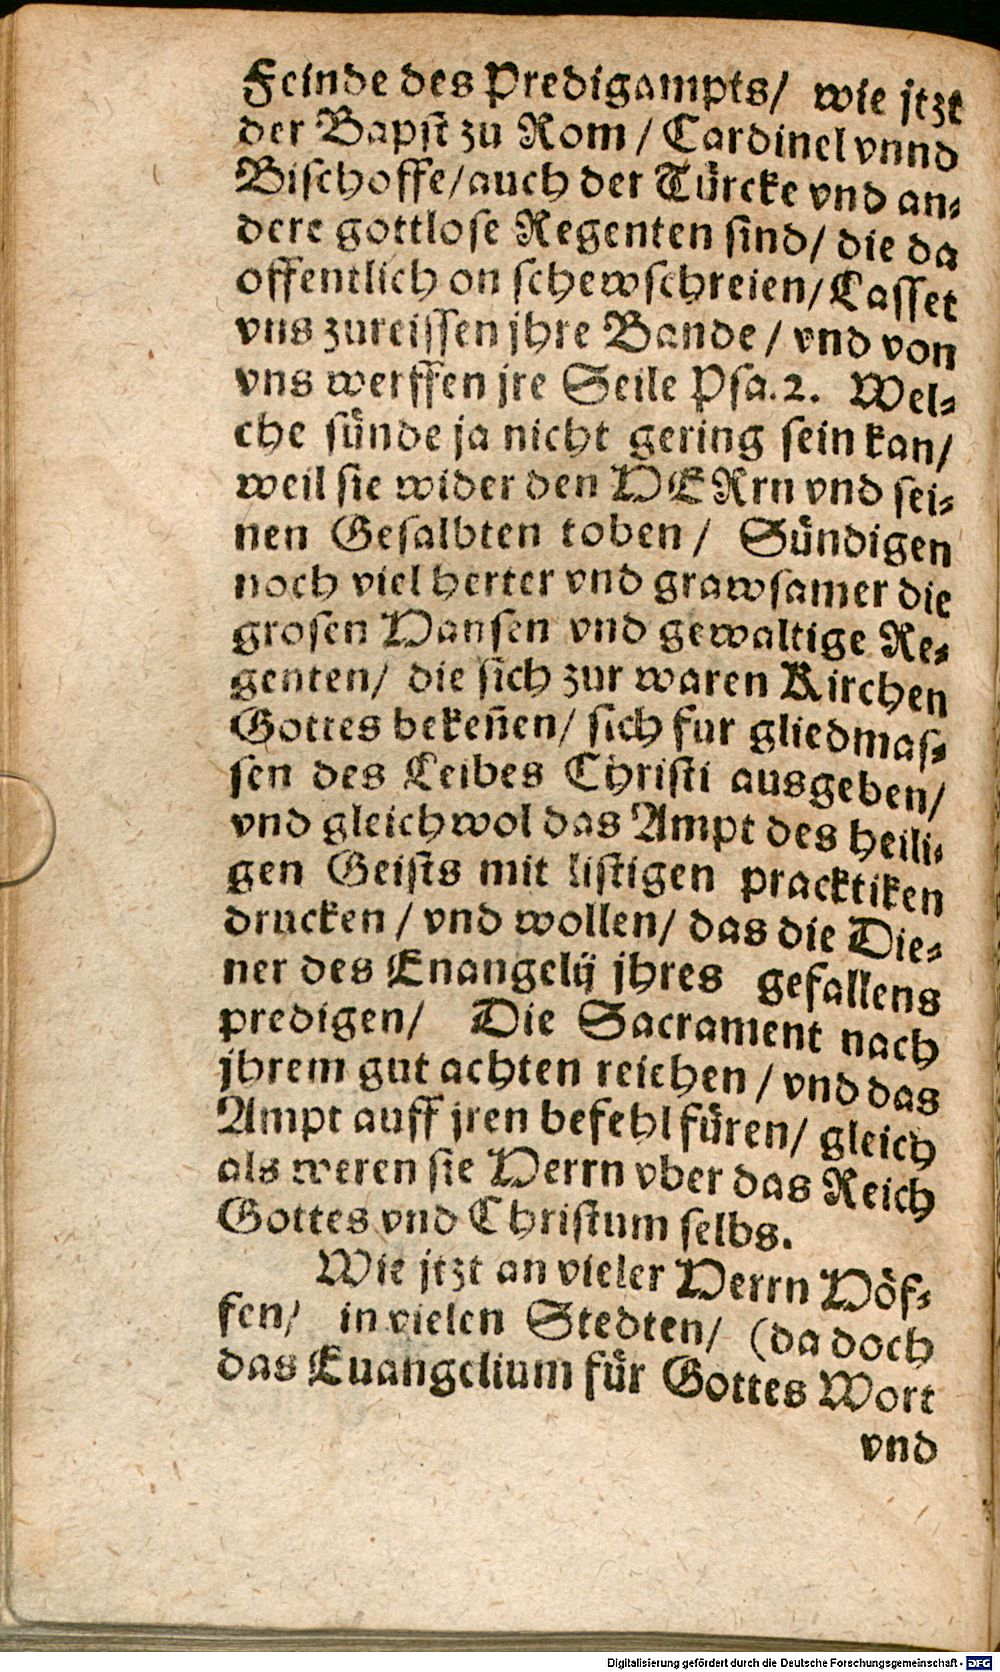 Feinde des Predigampts/ wie jtzt
der Bapſt zu Rom / Cardinel vnnd
Biſchoffe/auch der Tuͤrcke vnd an⸗
dere gottloſe Regenten ſind/ die da
offentlich on ſchewſchreien/Laſſet
vns zureiſſen jhre Bande / vnd von
vns werffen jre Seile Pſa.2. Wel⸗
che ſuͤnde ja nicht gering ſein kan/
weil ſie wider den HERrn vnd ſei⸗
nen Geſalbten toben / Suͤndigen
noch viel herter vnd grawſamer die
groſen Hanſen vnd gewaltige Re⸗
genten/ die ſich zur waren Kirchen
Gottes bekeñen/ ſich fur gliedmaſ⸗
ſen des Leibes Chriſti ausgeben/
vnd gleichwol das Ampt des heili⸗
gen Geiſts mit liſtigen pracktiken
drucken / vnd wollen/ das die Die⸗
ner des Enangelij jhres gefallens
predigen/ Die Sacrament nach
jhrem gut achten reichen / vnd das
Ampt auff jren befehl fuͤren/ gleich
als weren ſie Herrn vber das Reich
Gottes vnd Chriſtum ſelbs.
Wie jtzt an vieler Herrn Hoͤf⸗
fen/ in vielen Stedten/ (da doch
das Euangelium fuͤr Gottes Wort
vnd
Digitalisierung gefördert durch die Deutsche Forschungsgemeinschaft - DFG